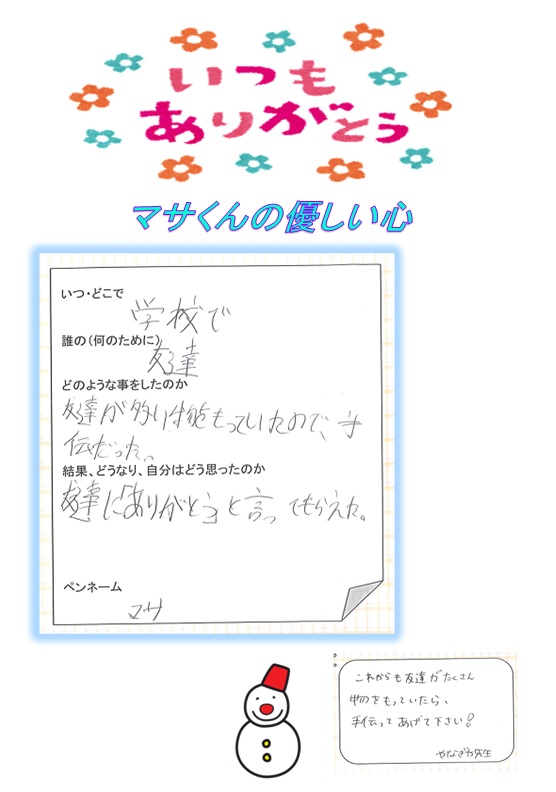 いつも
ありがとう
マサくんの優しい心
いつ・どこで
学校で
誰の(何のために)
友達
どのような事をしたのか
友達が多い物をもっていたので、手
伝だった。
結果、どうなり、自分はどう思ったのか
友達に「ありがとう」と言ってもらえた。
ペンネーム
マサ
これからも友達がたくさん
物をもっていたら、
手伝ってあげて下さい!
やなぎわ先生